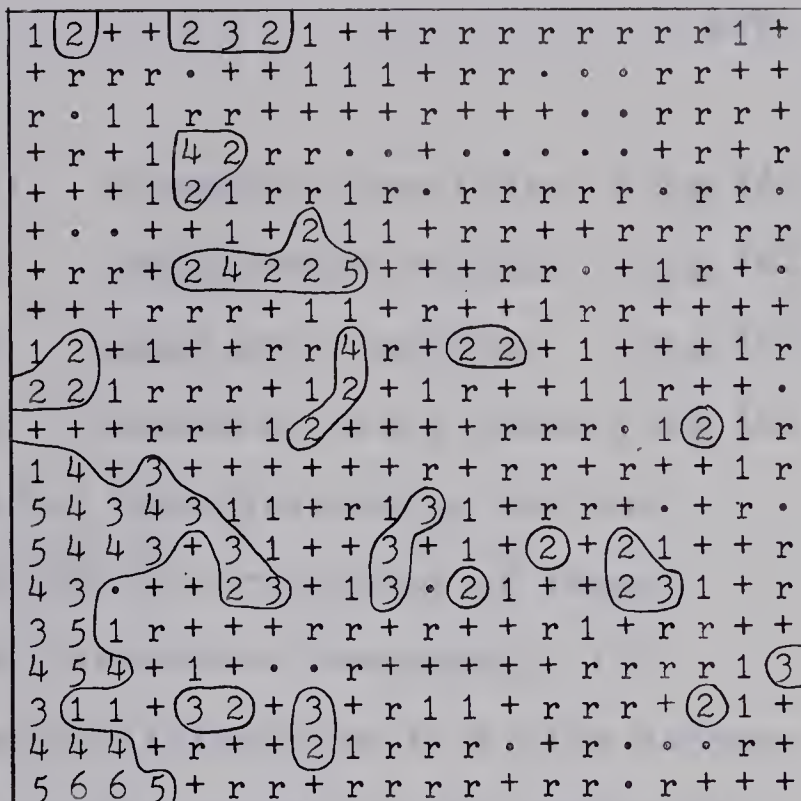 1 2 + + 2 3 2 1 + + r r r r r r r r 1 +
+ r r r • + + 1 1 1 + r r • ∘ ∘ r r + +
r • 1 1 r r + + + + r + + + • • r r r +
+ r + 1 4 2 r r • • + • • • • • + r + r
+ + + 1 2 1 r r 1 r • r r r r r • r r •
+ • • + + 1 + 2 1 1 + r r + + r r r r r
+ r r + 2 4 2 2 5 + + + r r ∘ + 1 r + •
+ + + r r r + 1 1 + r + + 1 r r + + + +
1 2 + 1 + + r r 4 r + 2 2 + 1 + + + 1 r
2 2 1 r r r + 1 2 + 1 r + + 1 1 r + + •
+ + + r r + 1 2 + + + + r r r • 1 2 1 r
1 4 + 3 + + + + + + r + r r + r + + 1 r
5 4 3 4 3 1 1 + r 1 3 1 + r r + • + r •
5 4 4 3 + 3 1 + + 3 + 1 + 2 + 2 1 + + r
4 3 • + + 2 3 + 1 3 • 2 1 + + 2 3 1 + r
3 5 1 r + + + r r + r + + r 1 + r r + +
4 5 4 + 1 + • • r + + + + + r r r r 1 3
3 1 1 + 3 2 + 3 + r 1 1 + r r r + 2 1 +
4 4 4 + r + + 2 1 r r r • + r • ∘ ∘ r +
5 6 6 5 + r r + r r r r + r r • r + + +